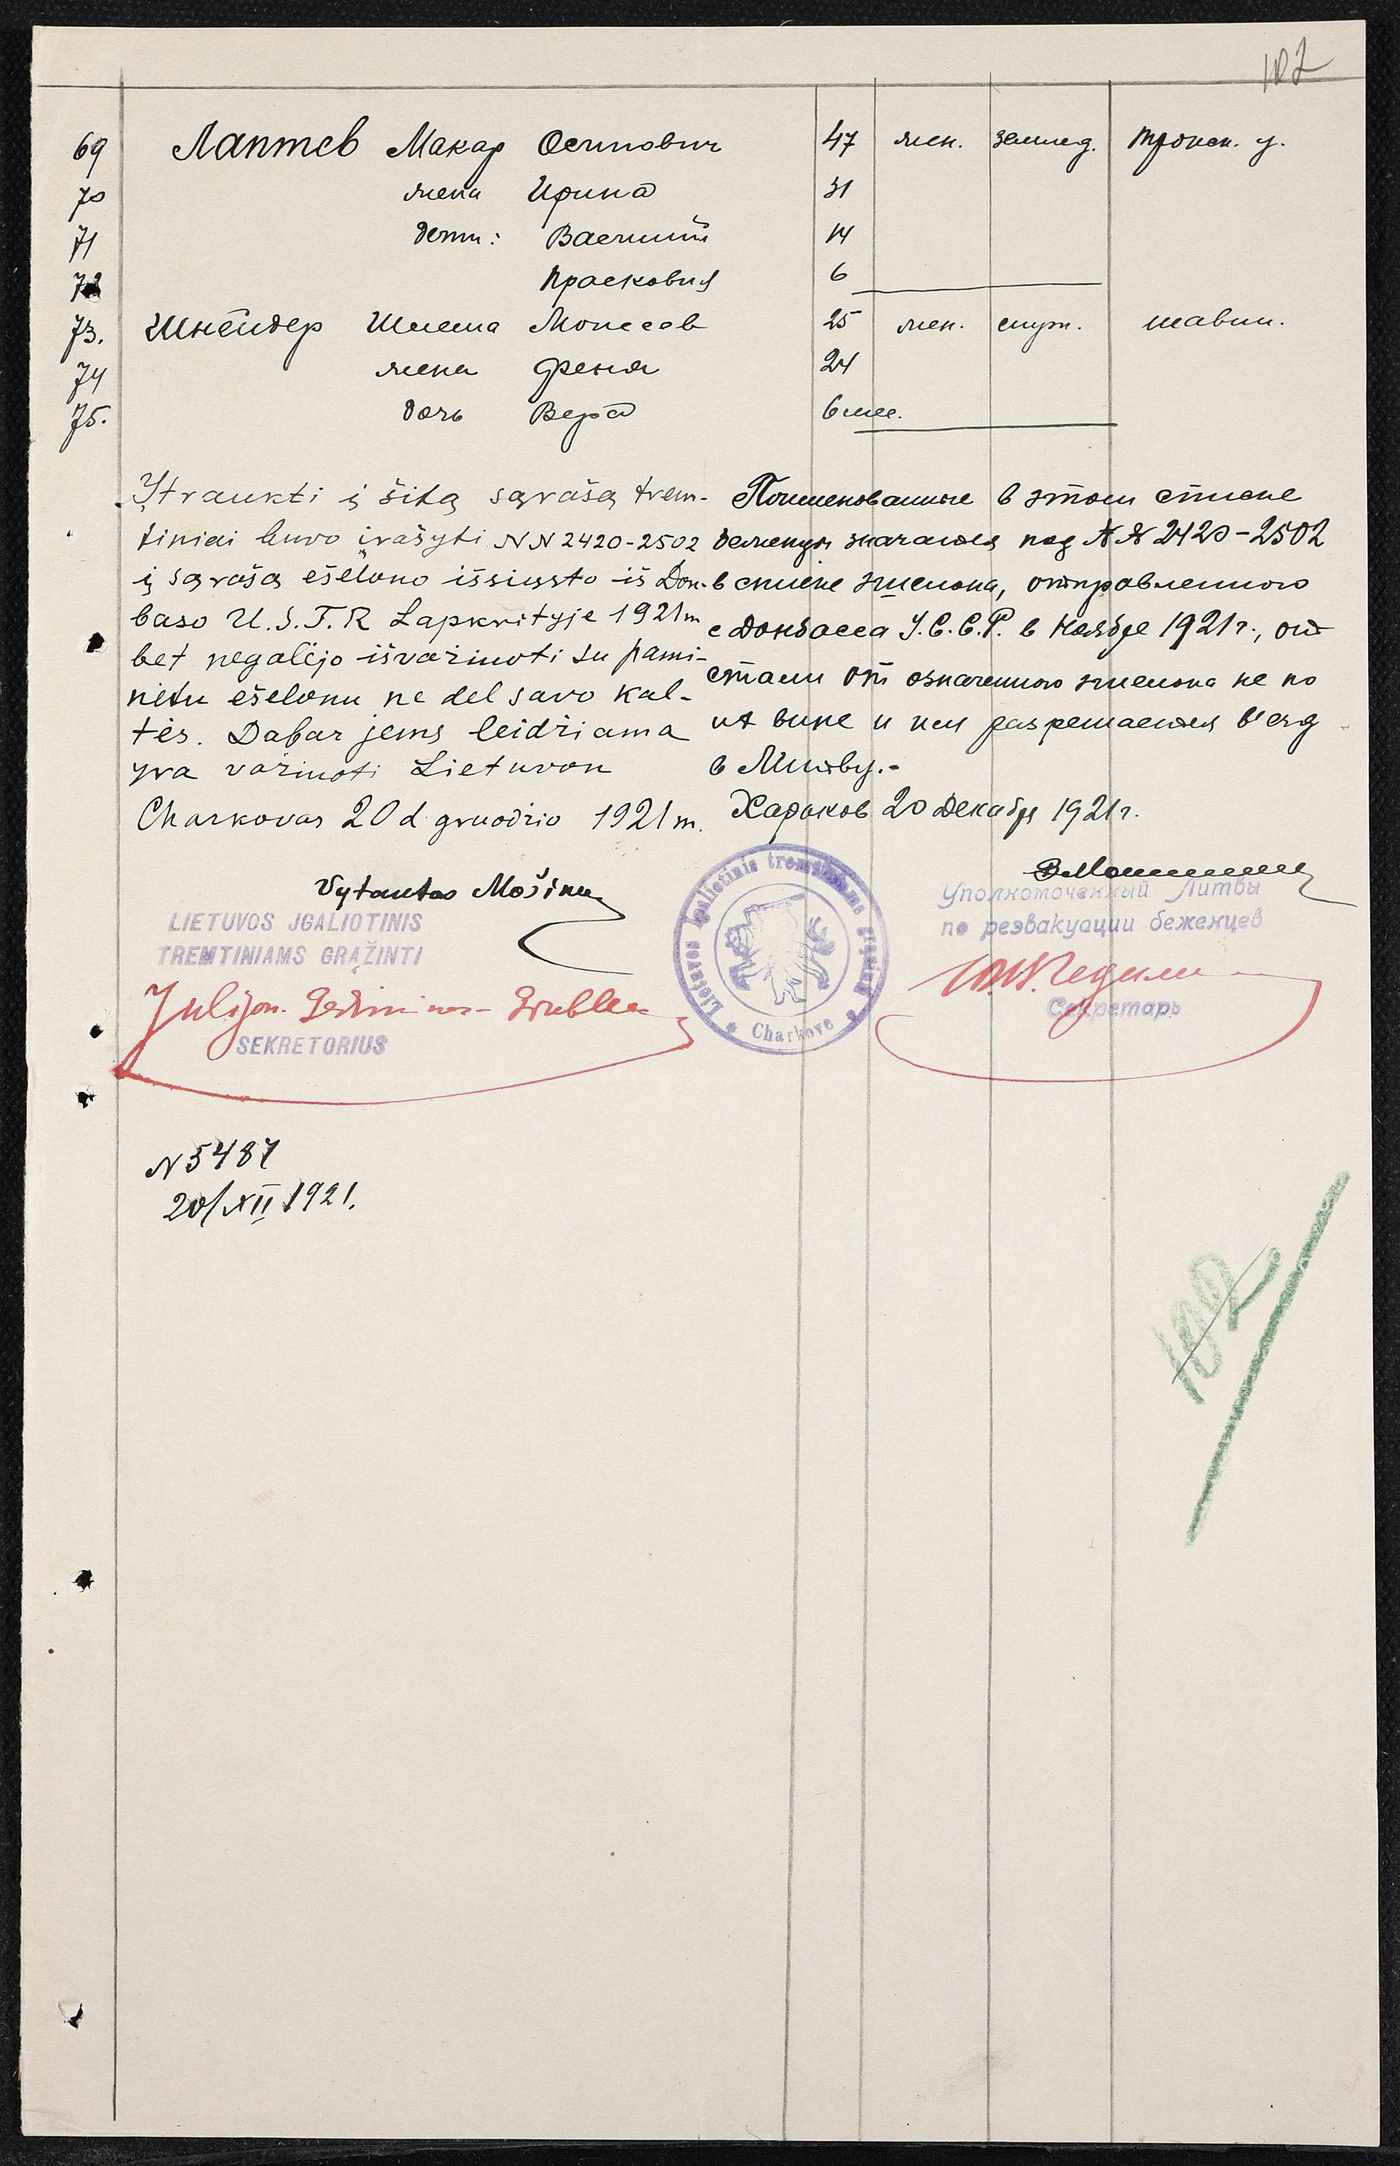 102
69 Лаптев Макар Осипович 47 жен. землед. трокск. у.
70 жена Ирина 31
71 дети: Василий 14
72 Прасковия 6
73. Шнейдер Шлема Моисеев 25 жен. служ. шавли.
74 жена Феня 24
75. дочь Вера 6 мес.
Įtraukti į šitą sąrašą trem-
tiniai buvo įrašyti NN 2420-2502
į sąrašą ešelono išsiųsto iš Don-
baso U.S.T.R Lapkrityje 1921 m
bet negalėjo išvažiuoti su pami-
nėtu ešelonu ne dėl savo kal-
tės. Dabar jems leidžiama
yra važiuoti Lietuvon
Charkovas 20 d gruodžio 1921 m.
Поименованные в этом списке
беженцы значатся под №№ 2420-2502
в списке эшелона, отправленного
с Донбасса У.С.С.Р. в Ноябре 1921 г., от
стали от означенного эшелона не по
их вине и им разрешается в'езд
в Литву.-
Харьков 20 Декабря 1921 г.
Vytautas
LIETUVOS JGALIOTINIS
TREMTINIAMS GRĄŽINTI
Julijon. Gediminas-
SEKRETORIUS
Lietuvos Įgaliotinis tremtiniams grąžinti
Charkove
Уполномоченный Литвы
по реэвакуации беженцев
Секретарь
N 5487
20/XII 1921.
102